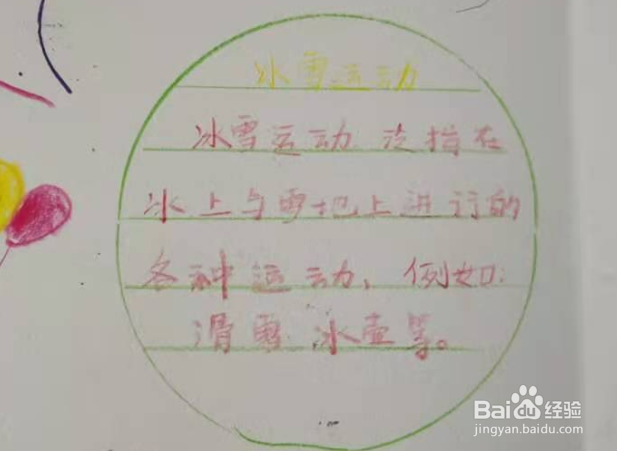 冰雪运动
冰雪运动泛指在
冰上与雪地上进行的
各种运动，例如：
滑雪 冰壶等。
Baidu经验
jingyan.baidu.com